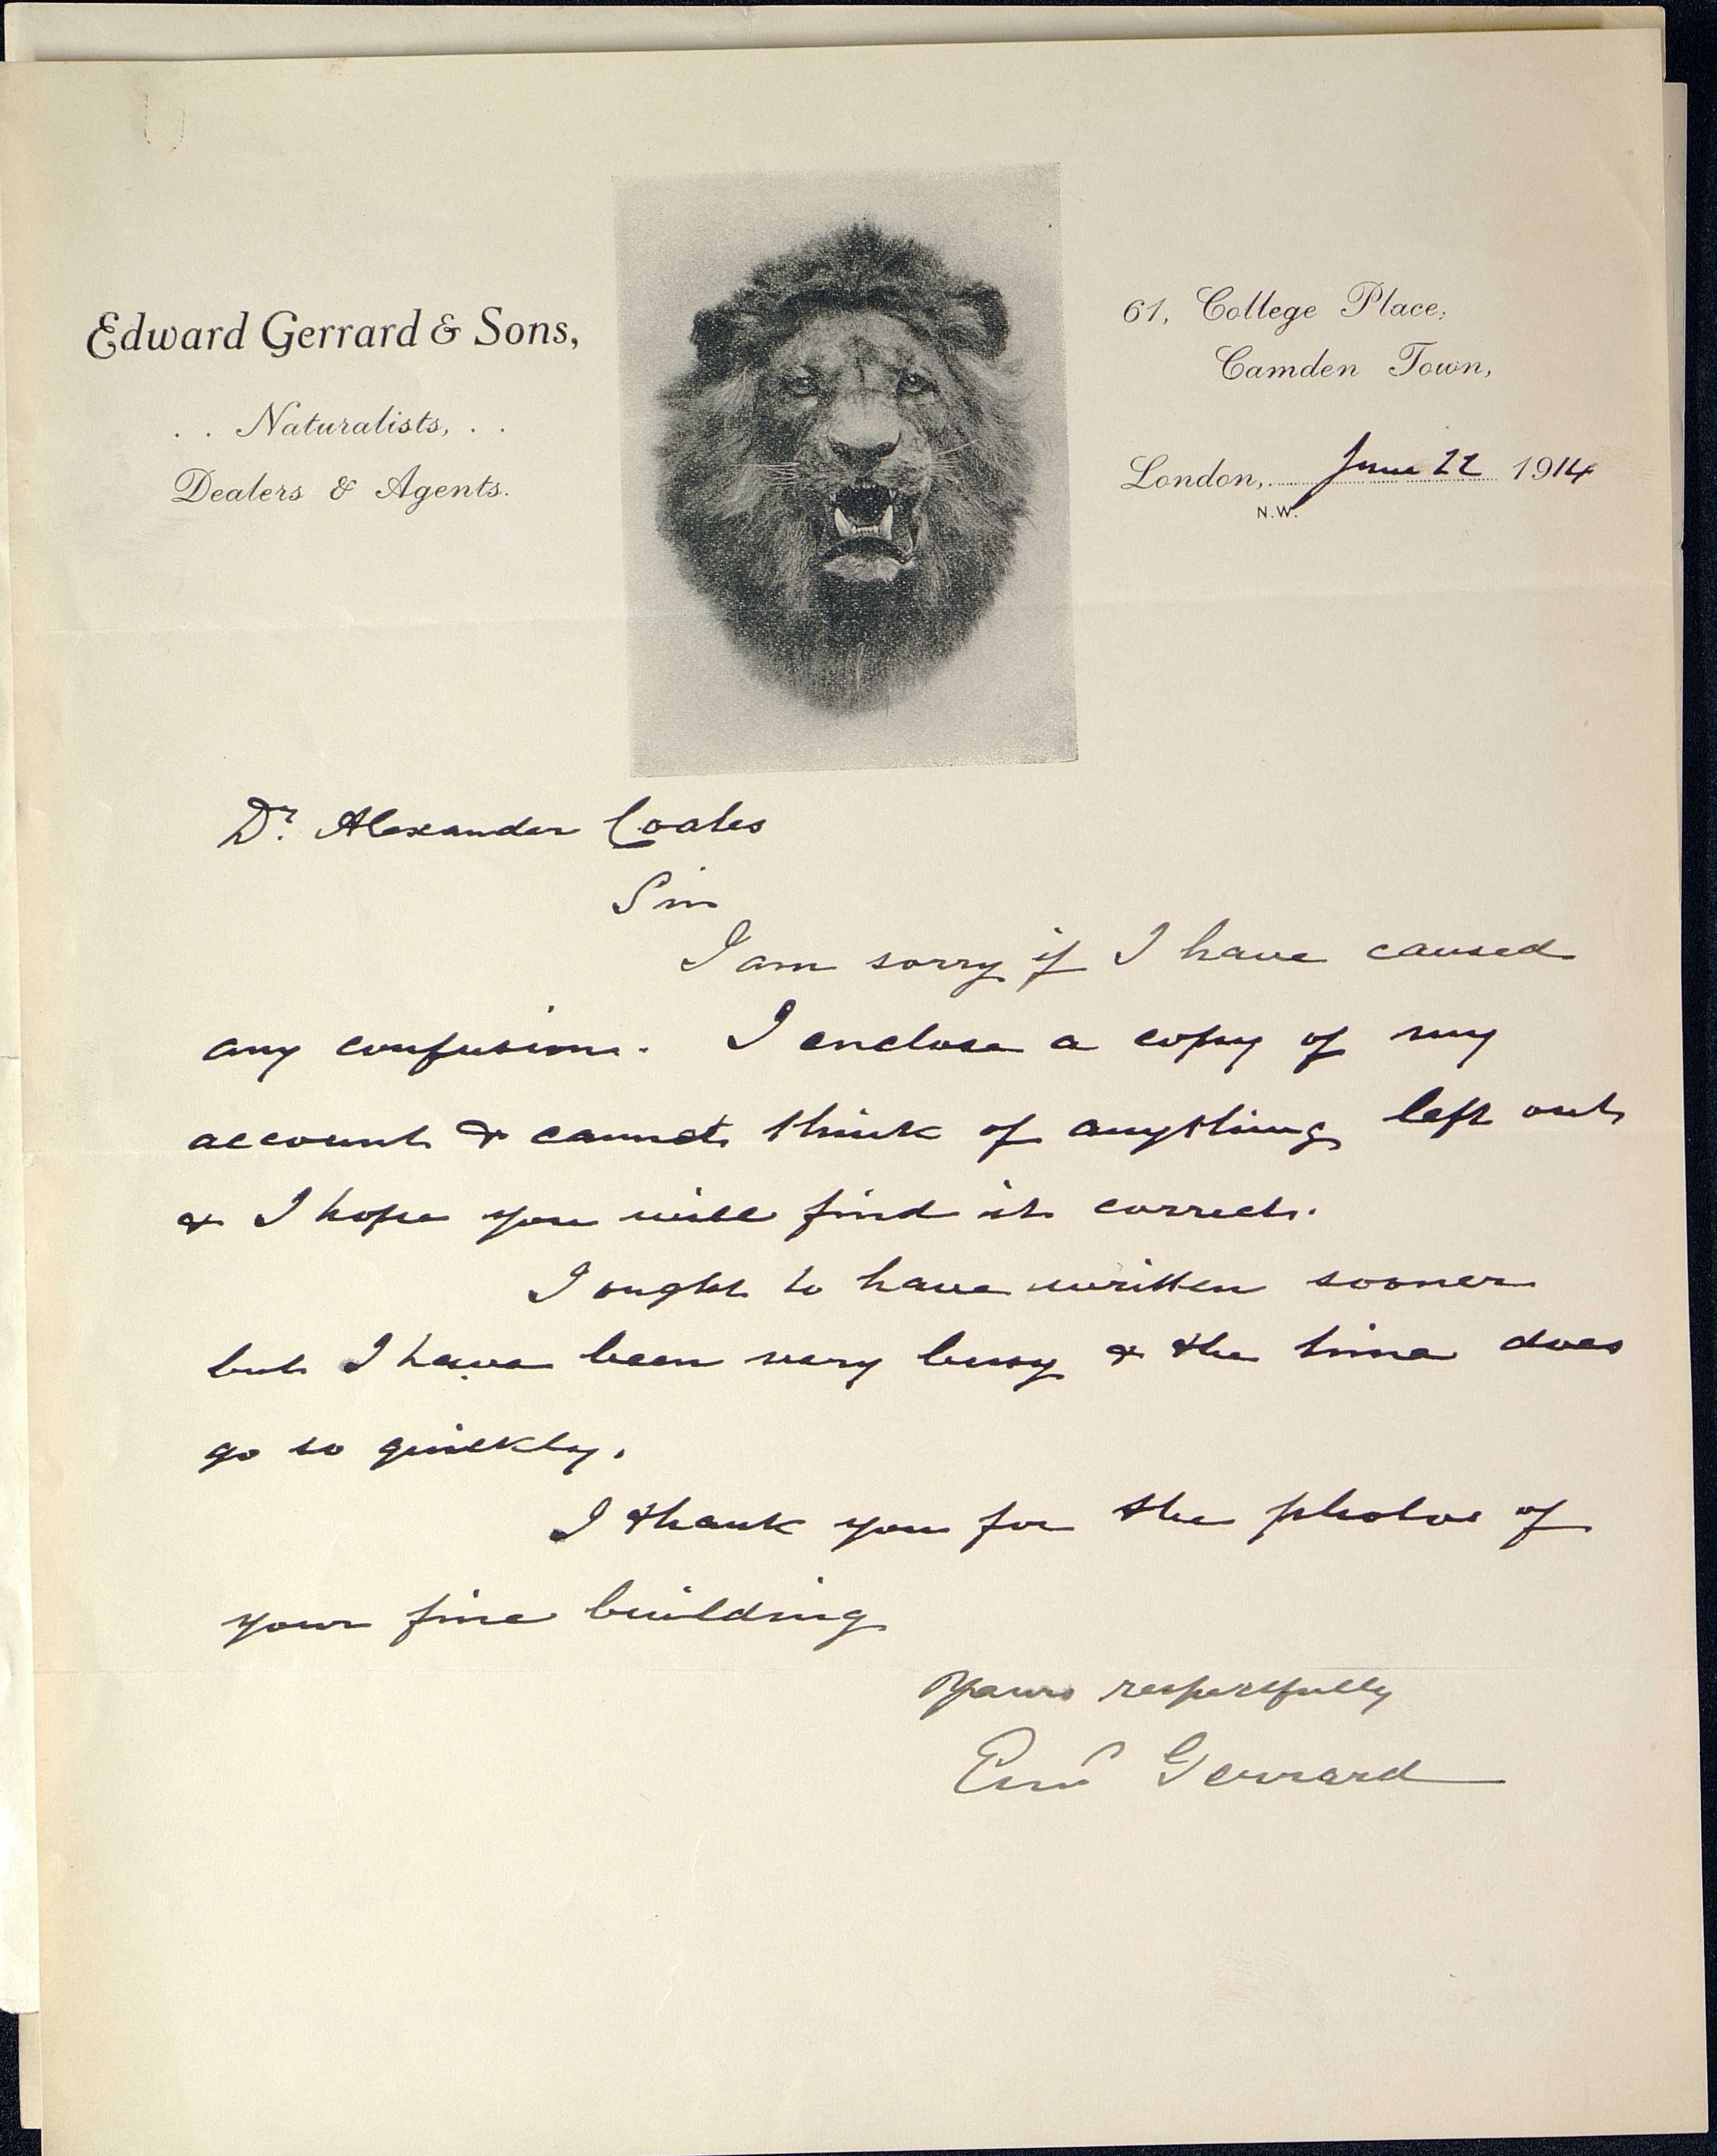 Edward Gerrard & Sons,
. . Naturalists, . .
Dealers & Agents.
61, College Place,
Camden Town,
London, June 22 1914
N.W.
Dr. Alexander Coales
Sir
I am sorry if I have caused
any confusion. I enclose a copy of my
account & cannot think of anything left out
& I hope you will find it correct.
I ought to have written sooner
but I have been very busy & the time does
go so quickly.
I thank you for the photos of
your fine building
Yours respectfully
Gerrard